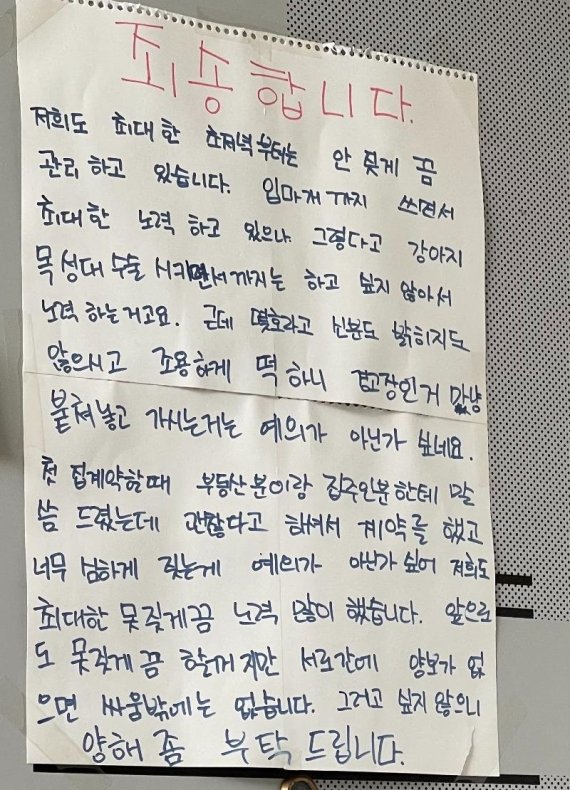 죄송합니다.
저희도 최대한 초저녁부터는 안 짖게 끔
관리 하고 있습니다. 입마개 까지 쓰면서
최대한 노력 하고 있으나 그렇다고 강아지
목 성대 수술 시키면서 까지는 하고 싶지 않아서
노력 하는거고요. 근데 몇호라고 신분도 밝히지도
않으시고 조용하게 떡 하니 경고장인거 마냥
붙쳐놓고 가시는거는 예의가 아닌가 싶네요.
첫 집계약할때 부동산 분이랑 집주인분한테 말
씀 드렸는데 괜찮다고 하셔서 계약를 했고
너무 심하게 짖는게 예의가 아닌가 싶어 저희도
최대한 못짖게끔 노력 많이 했습니다. 앞으로
도 못짖게 끔 할꺼지만 서로간에 양보가 없
으면 싸움밖에는 없습니다. 그러고 싶지 않으니
양해 좀 부탁 드립니다.